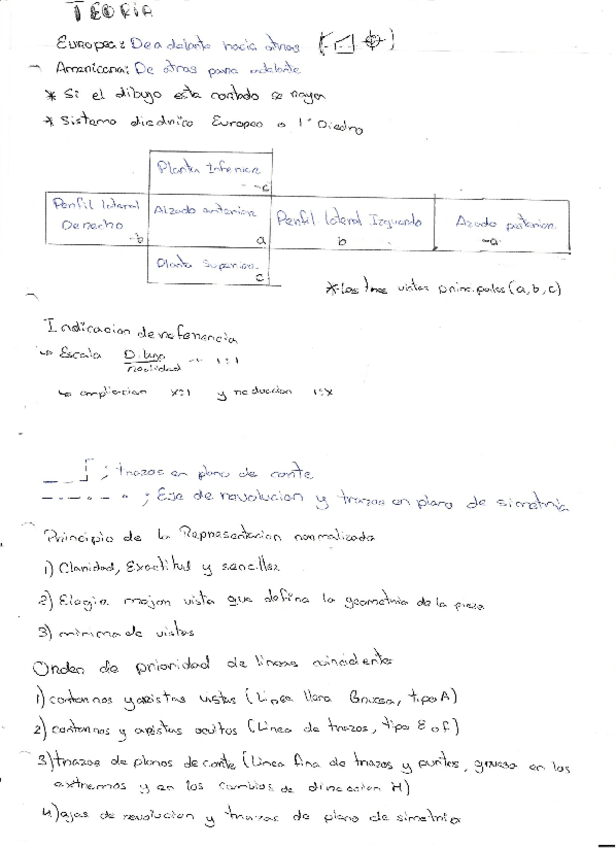 TEORIA
Europea: De adelante hacia atras
Americana: De atras para adelante
* Si el dibujo esta cortado se raya
* Sistema diedrico Europeo o 1º Diedro
Planta Inferior
-c
Perfil lateral Derecho
-b
Alzado anterior
a
Perfil lateral Izquierdo
b
Azado posterior
-a
Planta Superior
c
* las tres vistas principales (a, b, c)
Indicacion de referencia
↳ Escala Dibujo / realidad 1:1
↳ ampliacion x:1 y reduccion 1:x
; trazos en plano de corte
; Eje de revolucion y trazos en plano de simetria
Principio de la Representacion normalizada
1) Claridad, Exactitud y sencillez
2) Elegir mejor vista que defina la geometria de la pieza
3) minima de vistas
Orden de prioridad de lineas coincidentes
1) contornos y aristas vistas (Linea llena Gruesa, tipo A)
2) contornos y aristas ocultos (Linea de trazos, tipo E o F)
3) trazos de planos de corte (Linea fina de trazos y puntos, gruesa en los
extremos y en los cambios de direccion H)
4) ejes de revolucion y trazas de plano de simetria